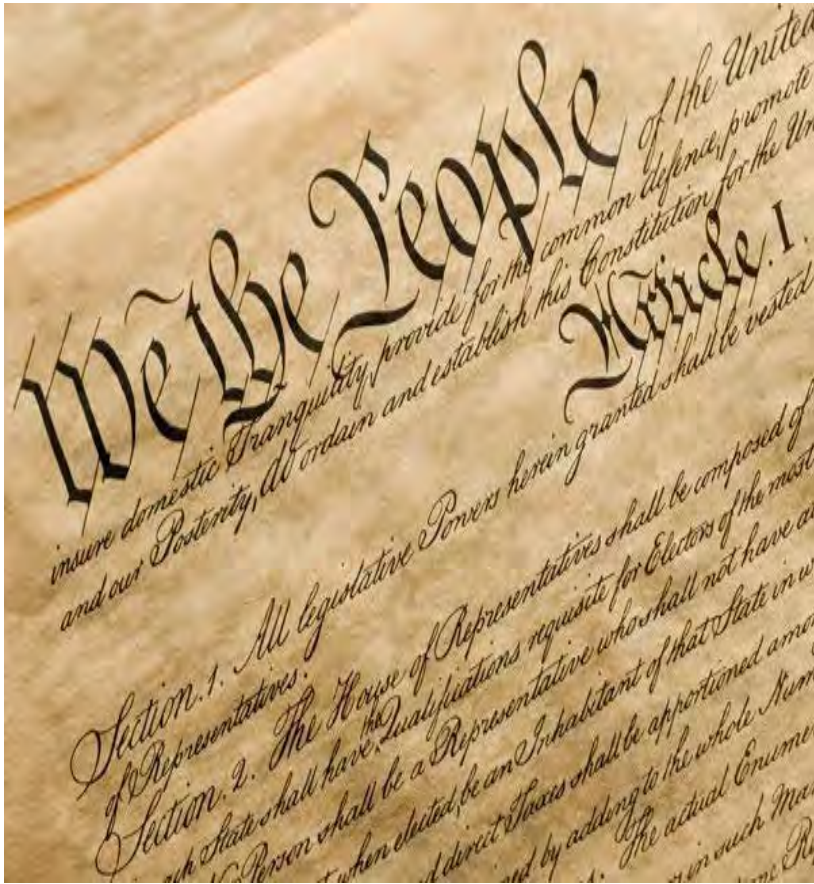 We the People of the United
insure domestic Tranquility, provide for the common defence, promote
and our Posterity, do ordain and establish this Constitution for the Un
Article. I.
Section. 1. All legislative Powers herein granted shall be vested
of Representatives.
Section. 2. The House of Representatives shall be composed of
each State shall have the Qualifications requisite for Electors of the most
No Person shall be a Representative who shall not have at
not, when elected, be an Inhabitant of that State in w
d direct Taxes shall be apportioned amo
ned by adding to the whole Num
s. The actual Enume
in such Man